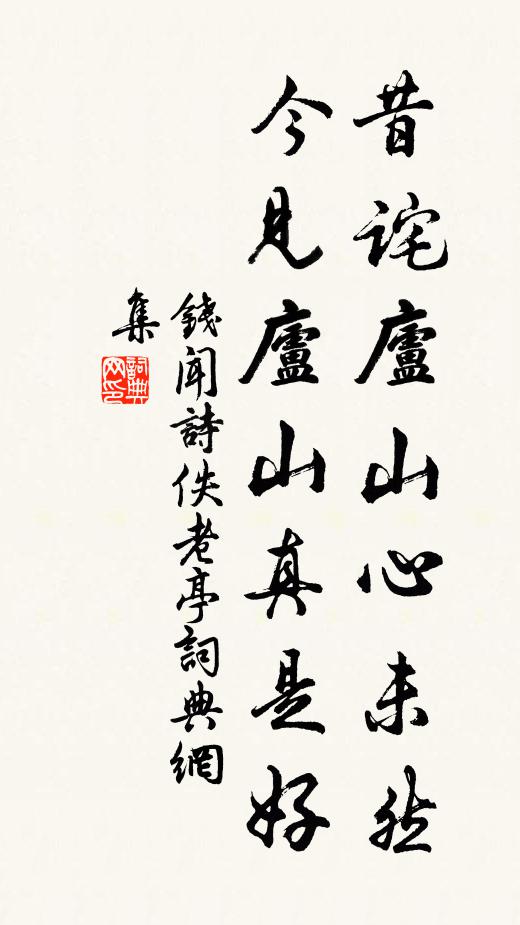 昔詫廬山心未然
今見廬山真是好
錢聞詩佚老亭詞典網
集
詞典
网印